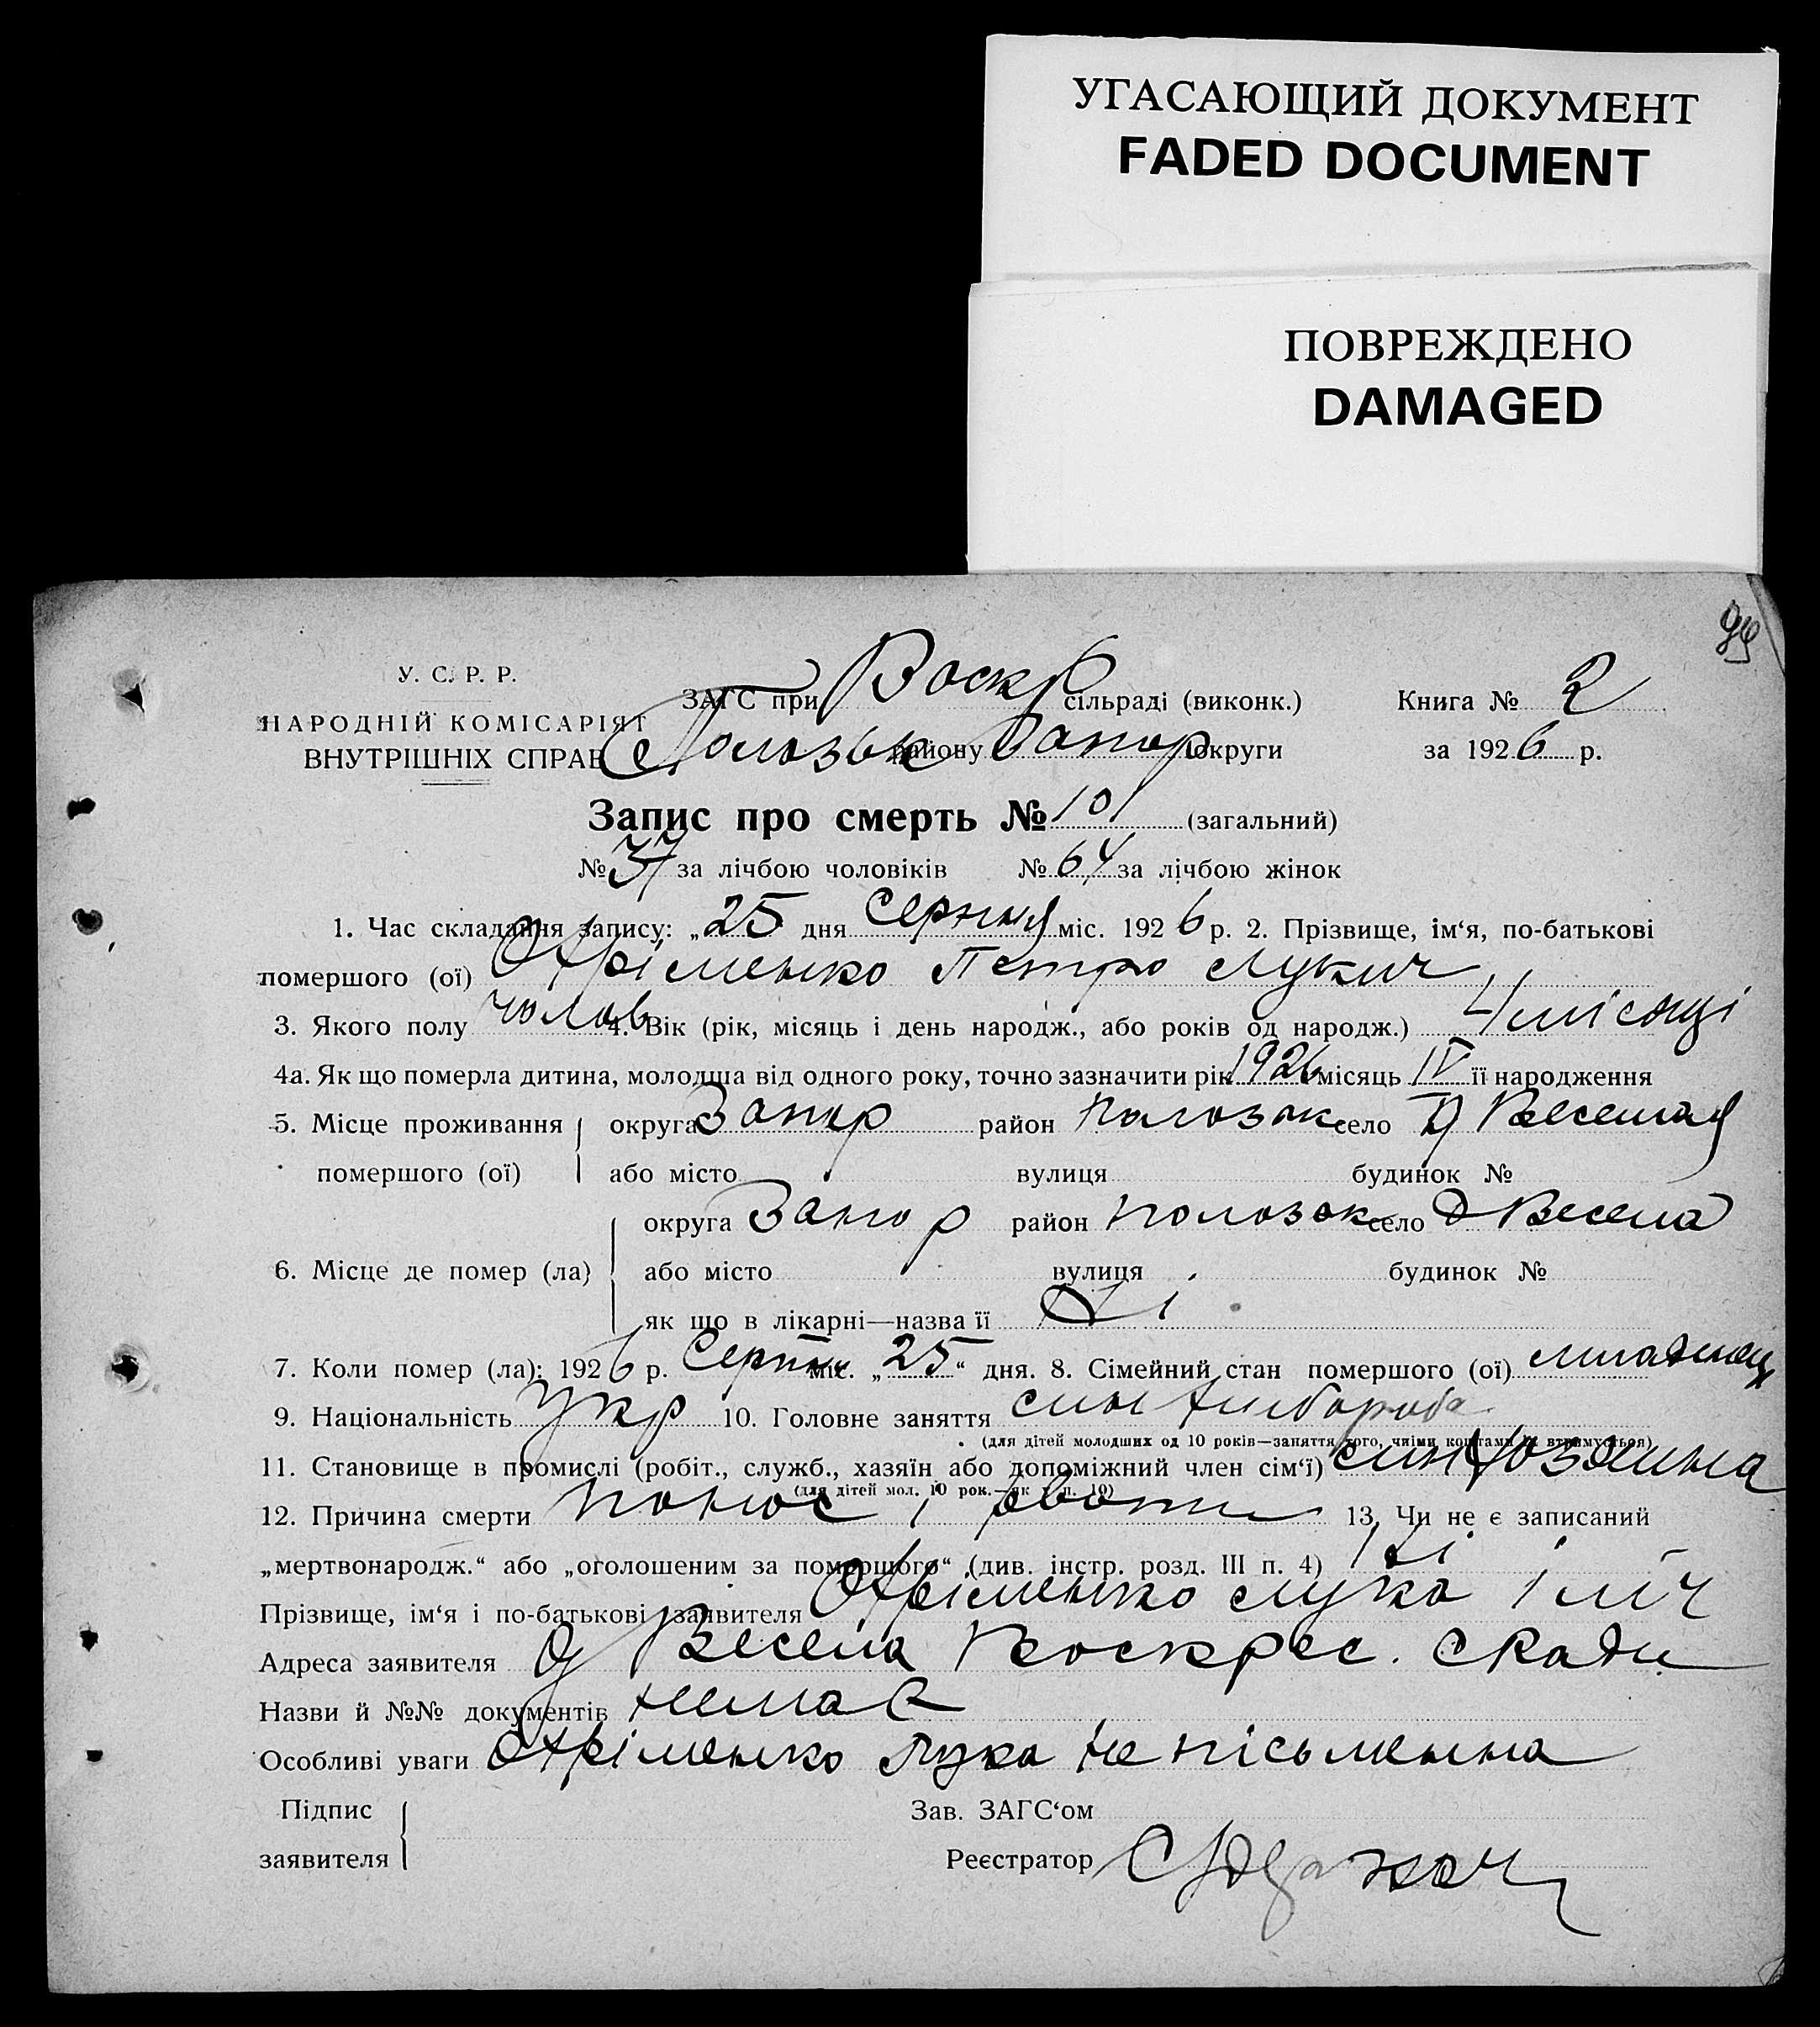 УГАСАЮЩИЙ ДОКУМЕНТ
FADED DOCUMENT
ПОВРЕЖДЕНО
DAMAGED
У. С. Р. Р.
НАРОДНІЙ КОМІСАРІЯТ
ВНУТРІШНІХ СПРАВ
ЗАГС при Воскр сільраді (виконк.) Книга № 2
району Запор округи за 1926 р.
Запис про смерть № 101 (загальний)
№ 37 за лічбою чоловіків № 64 за лічбою жінок
1. Час складання запису: „25 дня Серпня міс. 1926 р. 2. Прізвище, ім‘я, по-батькові
помершого (ої) Охріменко Петро Лукич
3. Якого полу чолов 4. Вік (рік, місяць і день народж., або років од народж.) 4 місяці
4а. Як що померла дитина, молодша від одного року, точно зазначити рік 1926 місяць IV її народження
5. Місце проживання округа Запор район Пологок село Д Веселая
помершого (ої) або місто вулиця будинок №
округа Запор район Пологок село Д Весела
6. Місце де помер (ла) або місто вулиця будинок №
як що в лікарні—назва її Ні
7. Коли помер (ла): 1926 р. Серпня міс. „25“ дня. 8. Сімейний стан помершого (ої) младенец
9. Національність Укр 10. Головне заняття син хлібороба
(для дітей молодших од 10 років—заняття того, чиїми коштами їх втримується)
11. Становище в промислі (робіт., служб., хазяїн або допоміжний член сім‘ї) син
(для дітей мол. 10 рок.—як у п. 10)
12. Причина смерти понос і рвоти 13. Чи не є записаний
„мертвонародж.“ або „оголошеним за помершого“ (див. інстр. розд. III п. 4) Ні
Прізвище, ім‘я і по-батькові заявителя Охріменко Лука Іліч
Адреса заявителя д Весела Воскрес. с Ради
Назви й №№ документів немає
Особливі уваги Охріменко Лука не пісьменна
Підпис Зав. ЗАГС‘ом
заявителя Реєстратор